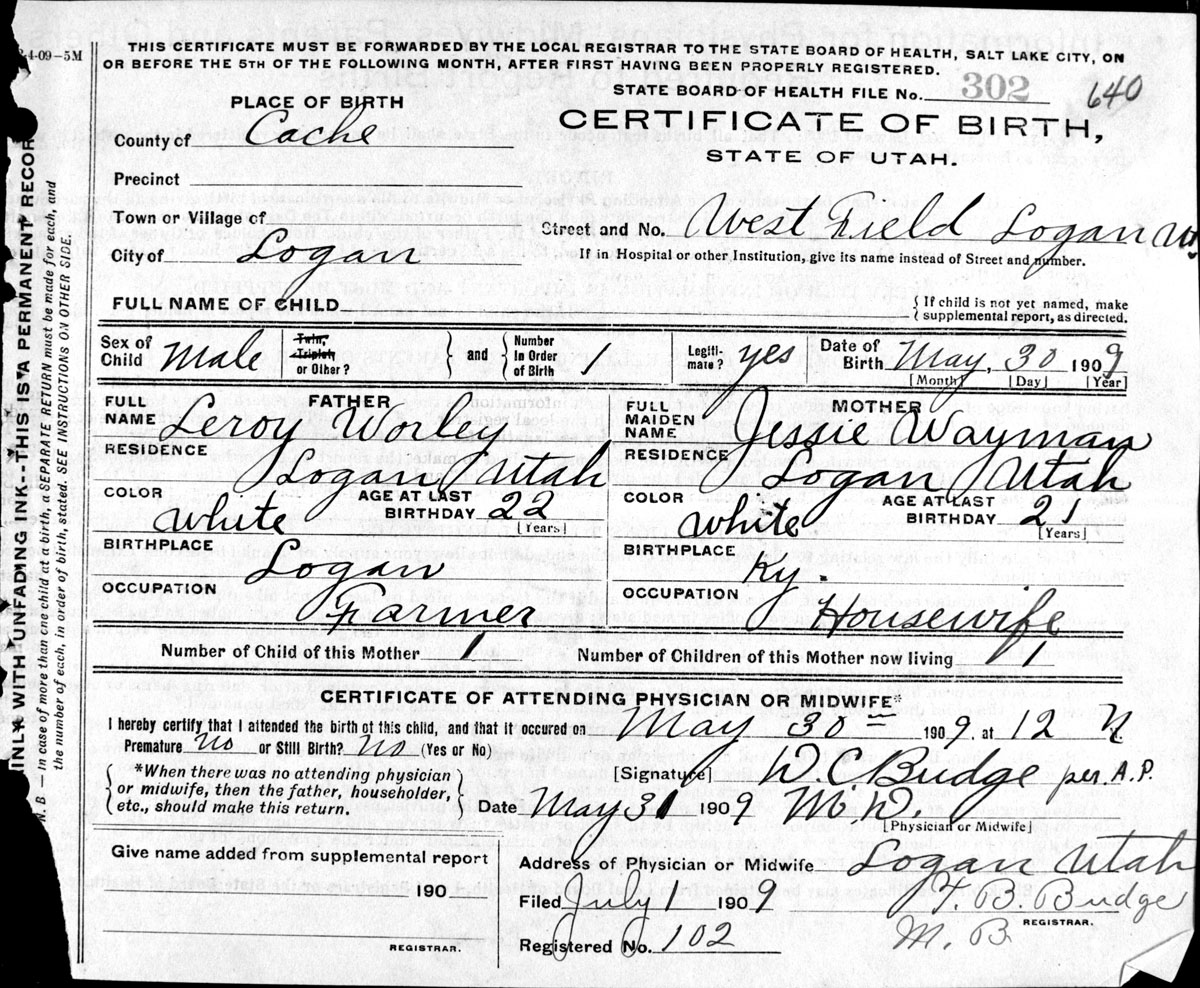 4-09-5M
THIS CERTIFICATE MUST BE FORWARDED BY THE LOCAL REGISTRAR TO THE STATE BOARD OF HEALTH, SALT LAKE CITY, ON
OR BEFORE THE 5TH OF THE FOLLOWING MONTH, AFTER FIRST HAVING BEEN PROPERLY REGISTERED.
STATE BOARD OF HEALTH FILE No. 302 640
PLACE OF BIRTH
County of Cache
CERTIFICATE OF BIRTH,
STATE OF UTAH.
Precinct
Town or Village of
Street and No. West Field Logan
City of Logan
If in Hospital or other Institution, give its name instead of Street and number.
FULL NAME OF CHILD
{ If child is not yet named, make
supplemental report, as directed.
Sex of Child Male Twin, Triplet, or Other? } and { Number In Order of Birth 1 Legiti-mate? yes Date of Birth May, 30 1909
[Month] [Day] [Year]
FATHER
FULL NAME Leroy Worley
RESIDENCE Logan Utah
COLOR White AGE AT LAST BIRTHDAY 22
[Years]
BIRTHPLACE Logan
OCCUPATION Farmer
MOTHER
FULL MAIDEN NAME Jessie Wayman
RESIDENCE Logan Utah
COLOR White AGE AT LAST BIRTHDAY 21
[Years]
BIRTHPLACE Ky.
OCCUPATION Housewife
Number of Child of this Mother 1 Number of Children of this Mother now living 1
CERTIFICATE OF ATTENDING PHYSICIAN OR MIDWIFE*
I hereby certify that I attended the birth of this child, and that it occured on May 30 1909, at 12
Premature No or Still Birth? No (Yes or No)
{ *When there was no attending physician
or midwife, then the father, householder,
etc., should make this return. }
[Signature] W. C. Budge per. A.P.
Date May 31 1909 M. D.
[Physician or Midwife]
Give name added from supplemental report
190
REGISTRAR.
Address of Physician or Midwife Logan Utah
Filed July 1 1909 T. B. Budge
REGISTRAR.
Registered No. 102 M. B
INLY WITH UNFADING INK--THIS IS A PERMANENT RECOR
N. B. — In case of more than one child at a birth, a SEPARATE RETURN must be made for each, and
the number of each, in order of birth, stated. SEE INSTRUCTIONS ON OTHER SIDE.